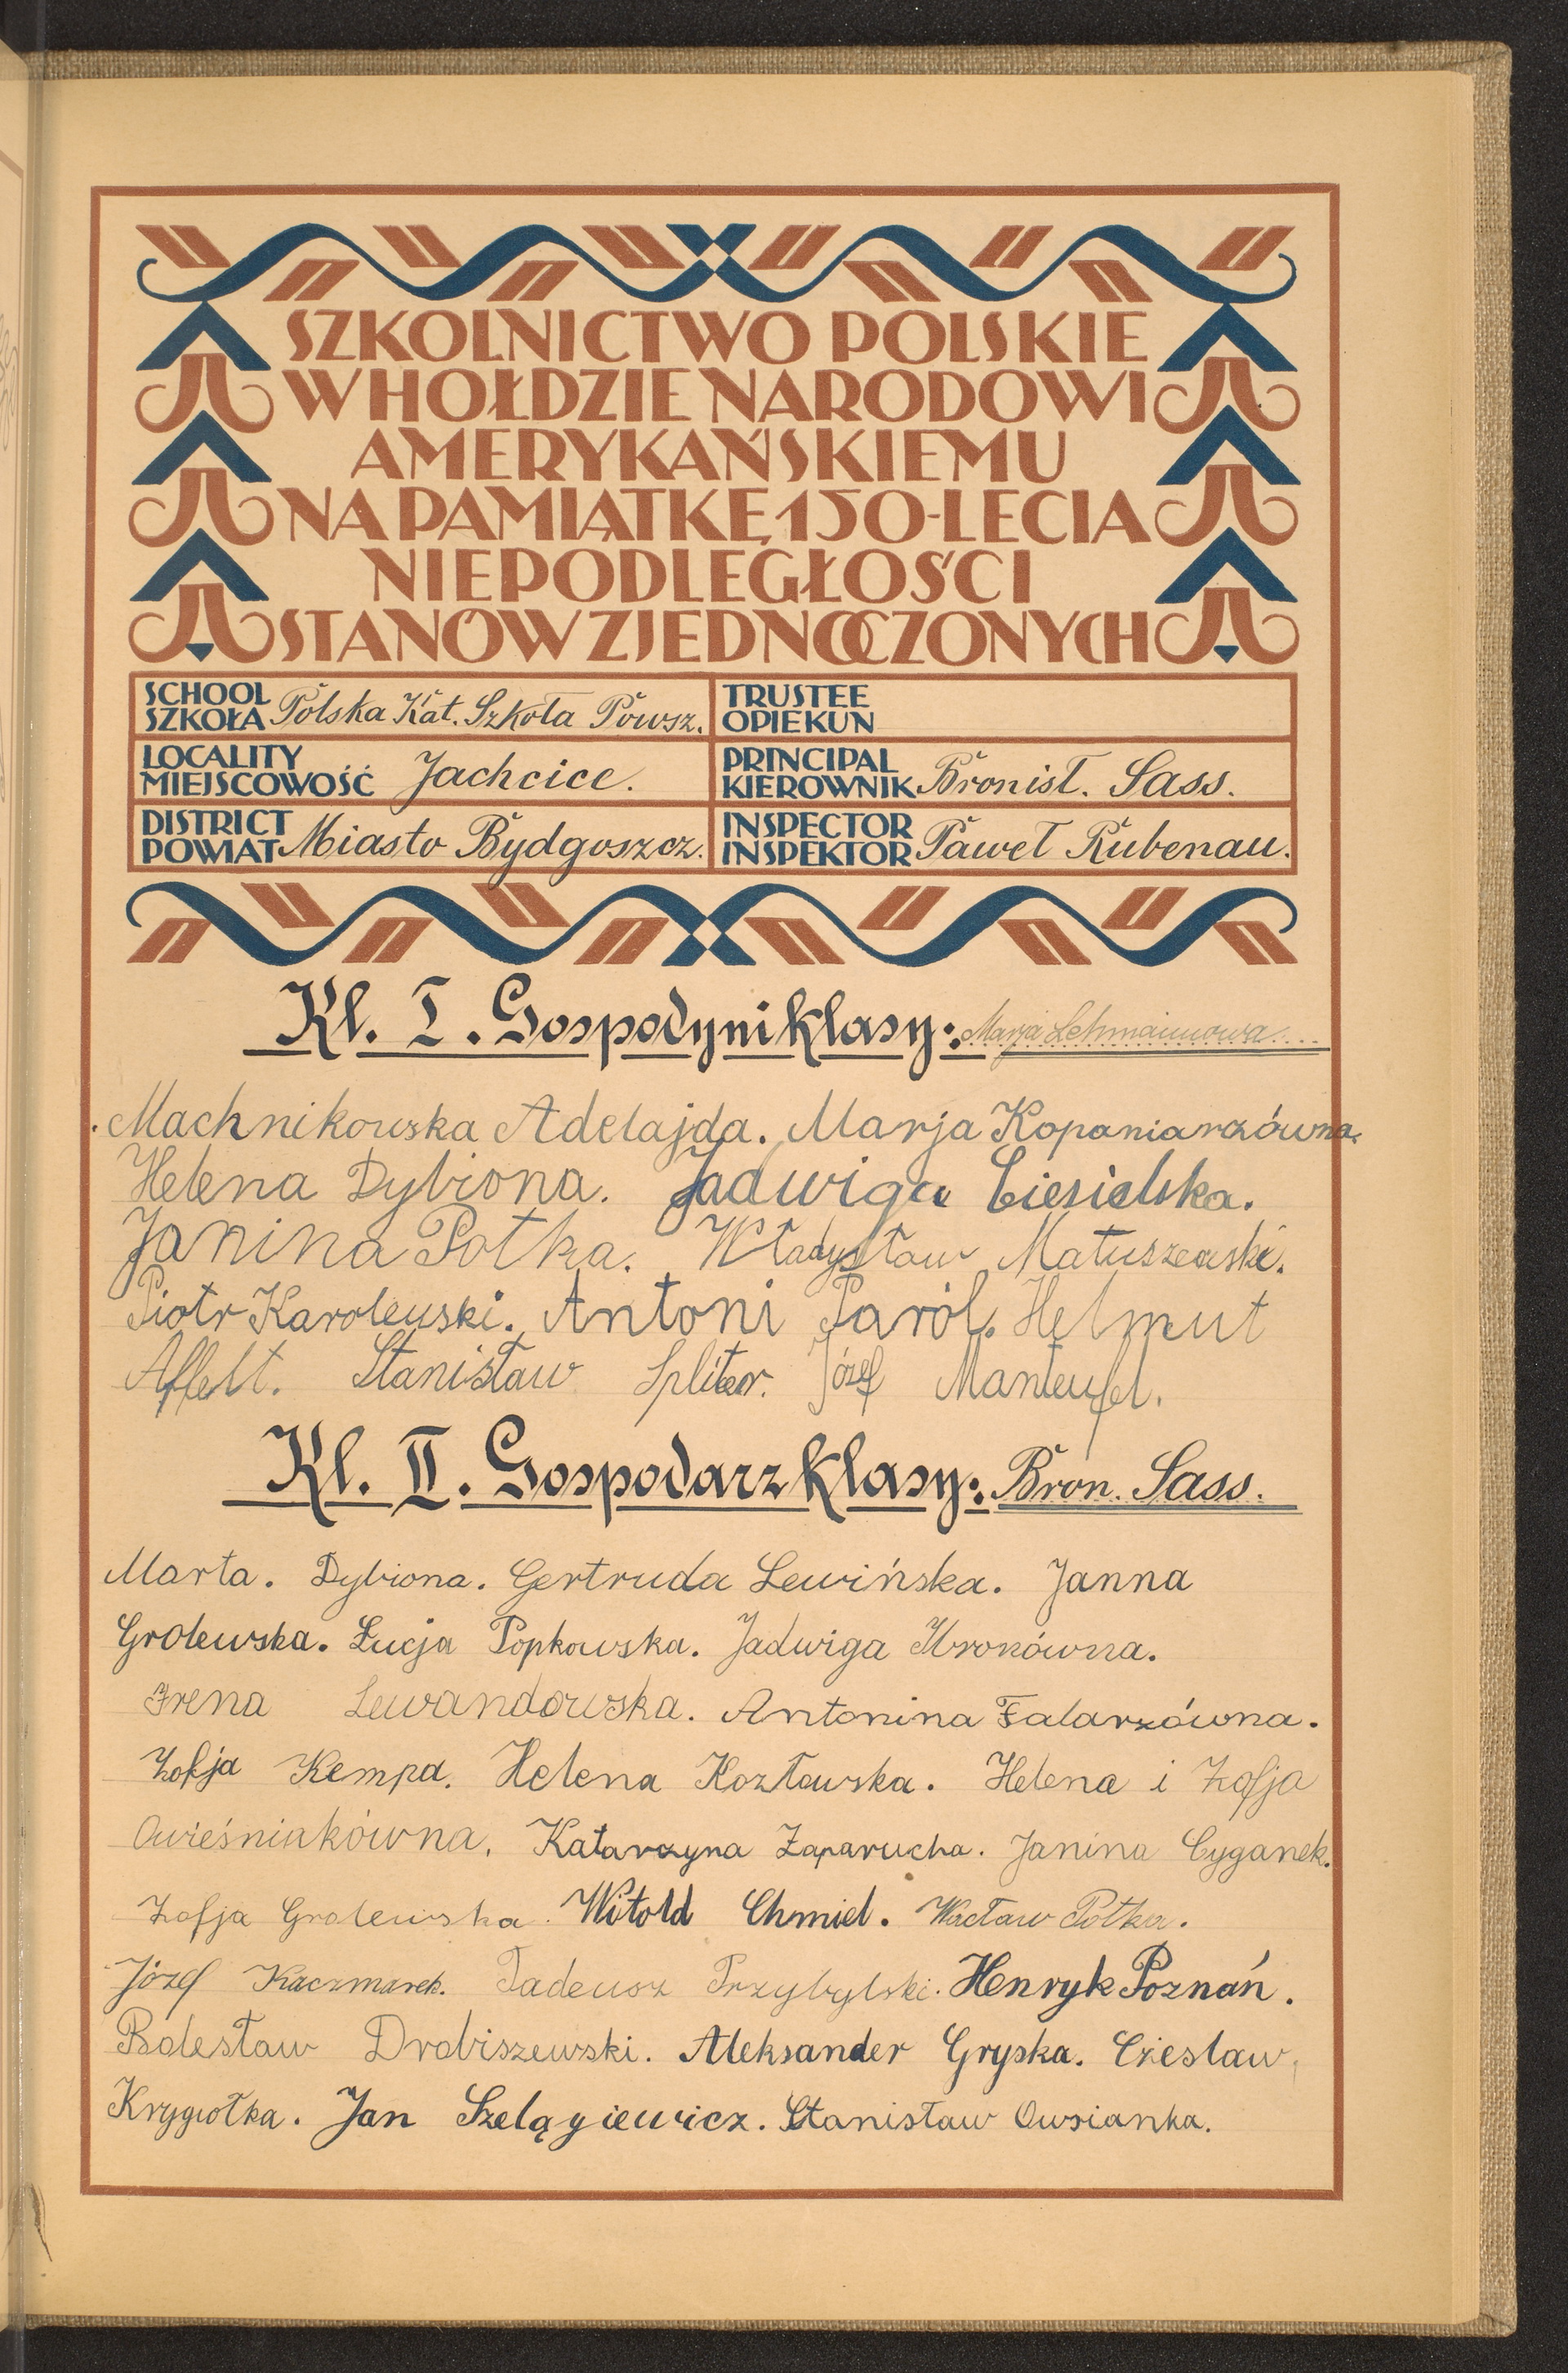 SZKOLNICTWO POLSKIE
W HOŁDZIE NARODOWI
AMERYKAŃSKIEMU
NA PAMIĄTKĘ 150-LECIA
NIEPODLEGŁOŚCI
STANÓW ZJEDNOCZONYCH
SCHOOL
SZKOŁA Polska Kat. Szkoła Powsz.
TRUSTEE
OPIEKUN
LOCALITY
MIEJSCOWOŚĆ Jachcice.
PRINCIPAL
KIEROWNIK Bronisł. Sass.
DISTRICT
POWIAT Miasto Bydgoszcz.
INSPECTOR
INSPEKTOR Paweł Rubenau.
Kl. I. Gospodyni klasy: Marja Lehmannowa
Machnikowska Adelajda. Marja Kopaniarzówna.
Helena Dybiona. Jadwiga Ciesielska.
Janina Połka. Władysław Matuszewski.
Piotr Karolewski. Antoni Paról. Helmut
Affelt. Stanisław Spliter. Józef Manteufel.
Kl. II. Gospodarz klasy: Bron. Sass.
Marta. Dybiona. Gertruda Lewińska. Janna
Grolewska. Łucja Popkowska. Jadwiga Wronówna.
Irena Lewandowska. Antonina Falarzówna.
Zofja Kempa. Helena Kozłowska. Helena i Zofja
Owieśniakówna. Katarzyna Zaparucha. Janina Cyganek.
Zofja Grolewska. Witold Chmiel. Wacław Połka.
Józef Kaczmarek. Tadeusz Przybylski. Henryk Poznań.
Bolesław Drobiszewski. Aleksander Gryska. Czesław
Krygiołka. Jan Szelągiewicz. Stanisław Owsianka.